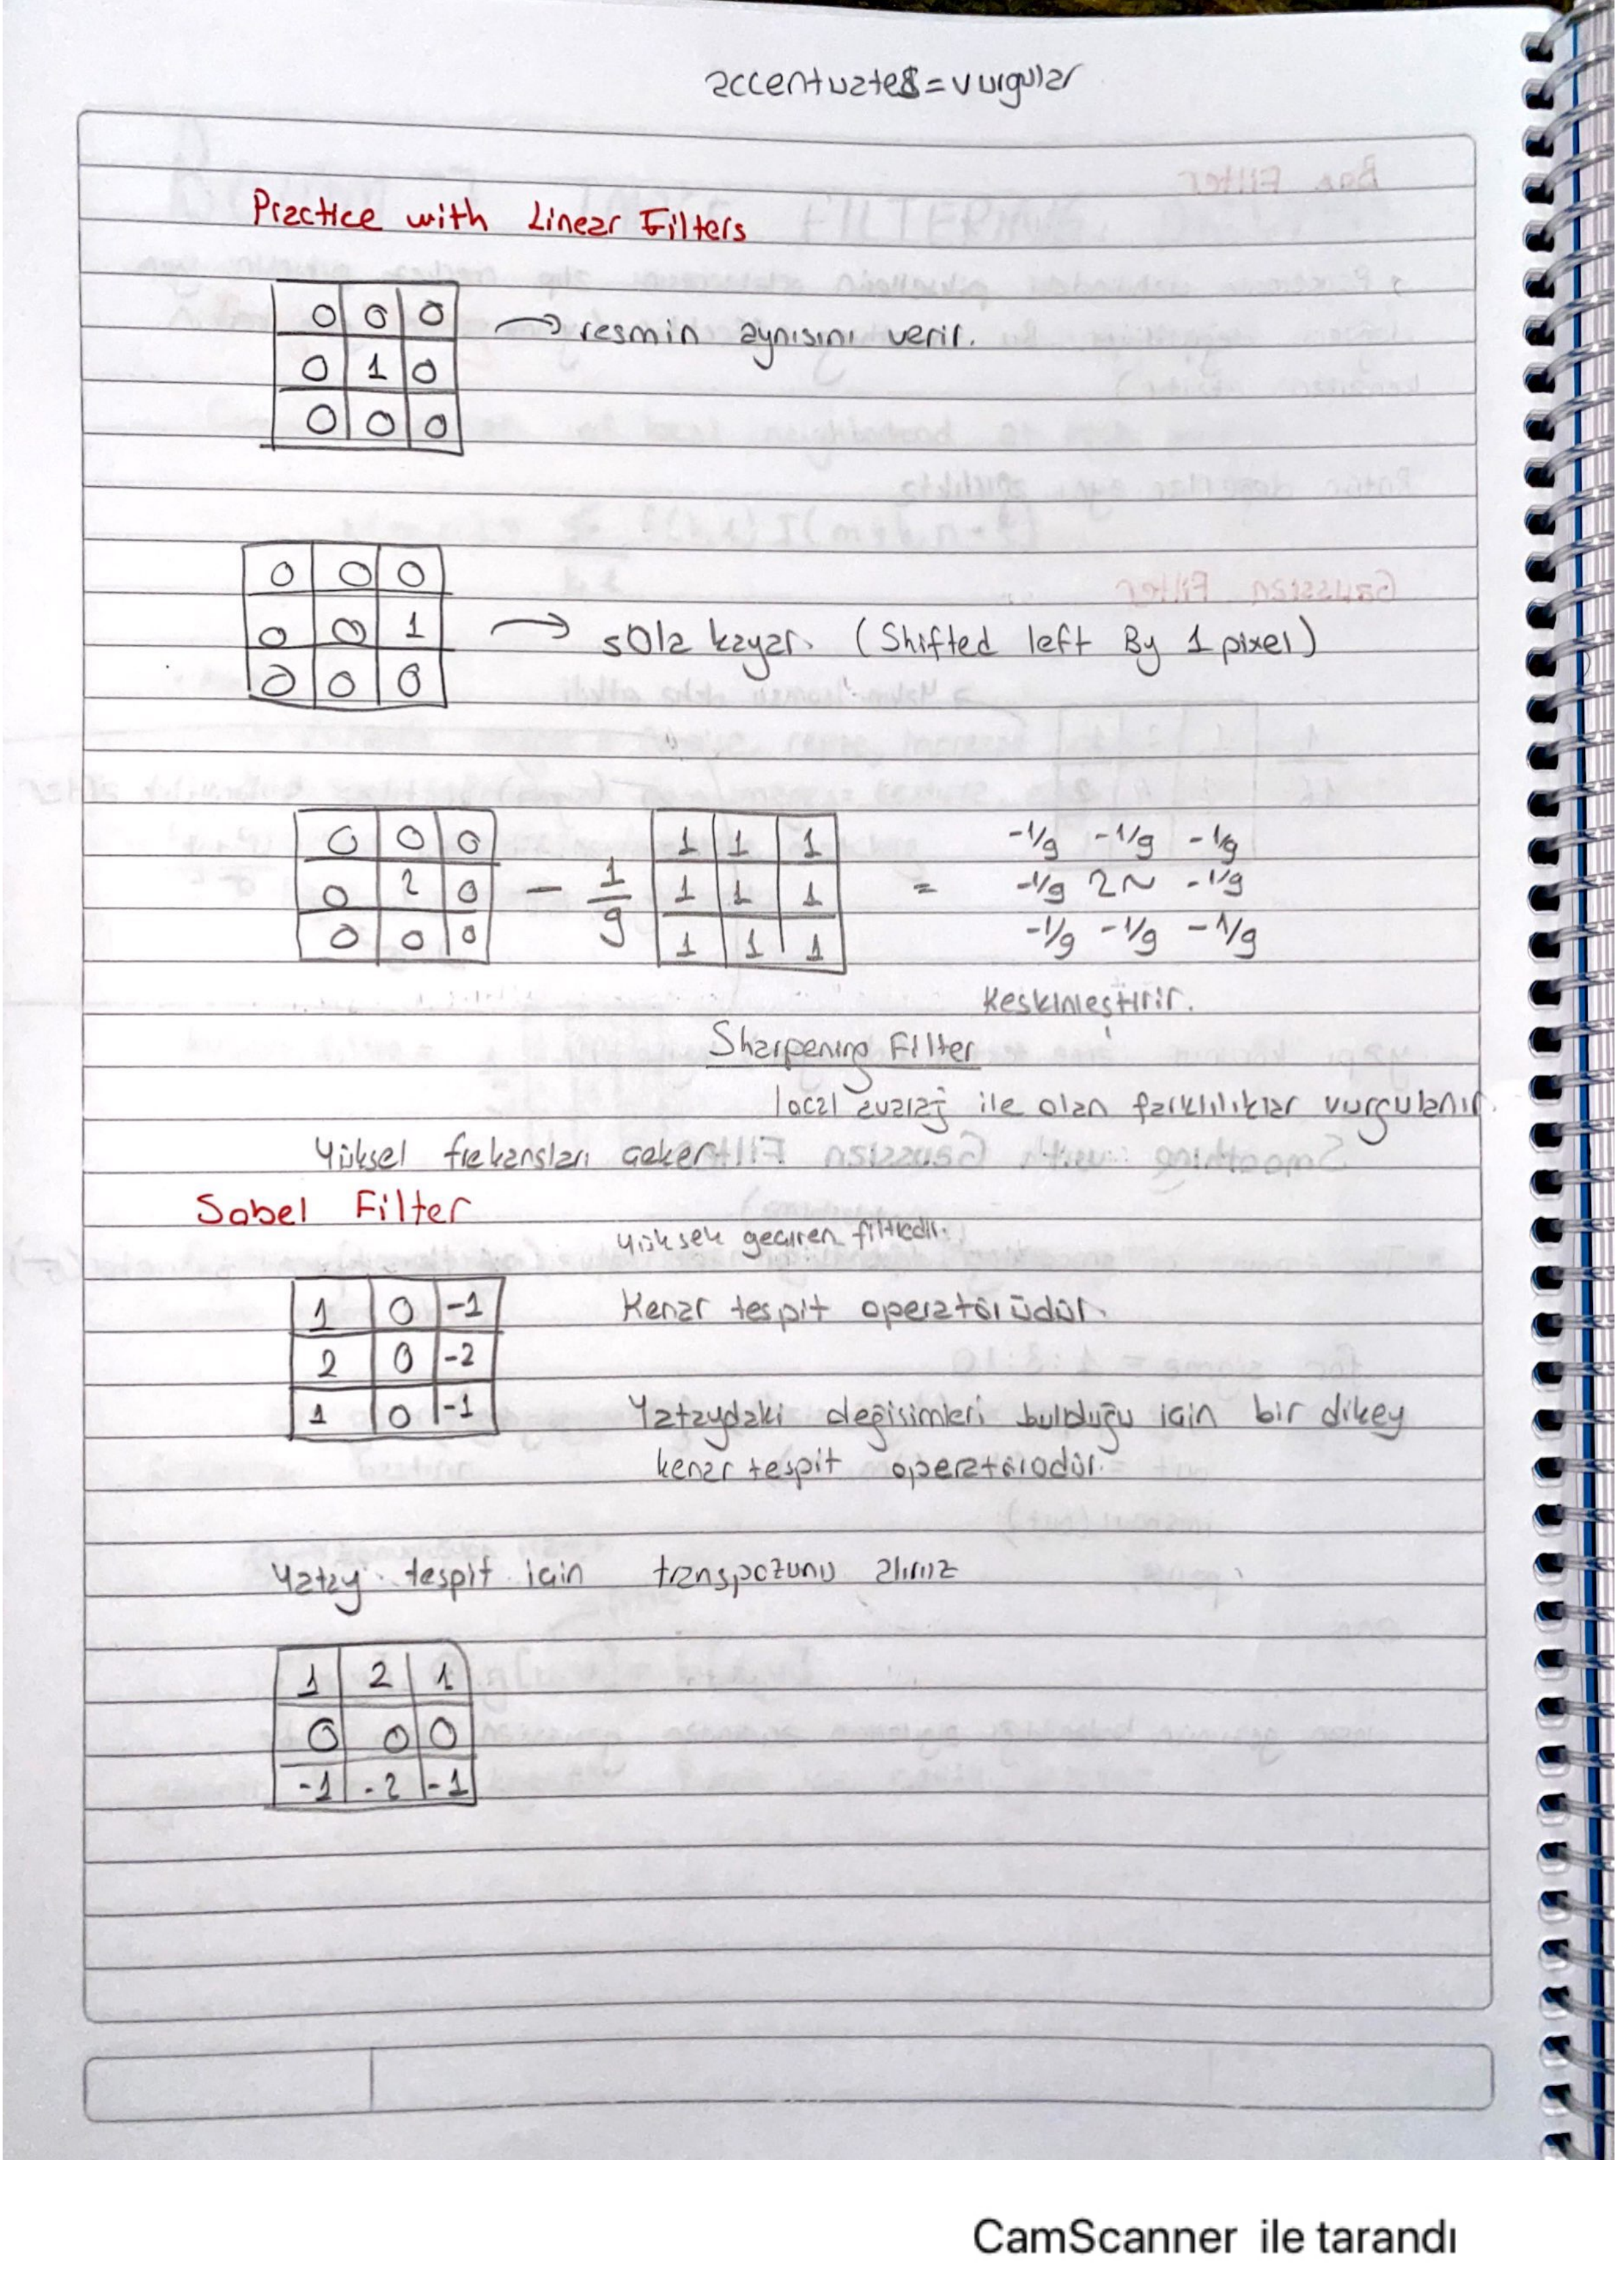 accentuates = vurgular
Practice with Linear Filters
0 0 0
0 1 0
0 0 0
→ resmin aynısını verir.
0 0 0
0 0 1
0 0 0
→ sola kayar. (Shifted left By 1 pixel)
0 0 0 1 1 1 -1/9 -1/9 -1/9
0 2 0 - 1/9 1 1 1 = -1/9 2~ -1/9
0 0 0 1 1 1 -1/9 -1/9 -1/9
Keskinleştirir.
Sharpening Filter
local avaraj ile olan farklılıklar vurgulanır.
Yüksel frekansları çeker
Sobel Filter
Yüksek geçiren filtredir.
1 0 -1
2 0 -2
1 0 -1
Kenar tespit operatörüdür.
Yataydaki değişimleri bulduğu için bir dikey
kenar tespit operatörüdür.
Yatay tespit için transpozunu alırız
1 2 1
0 0 0
-1 -2 -1
CamScanner ile tarandı